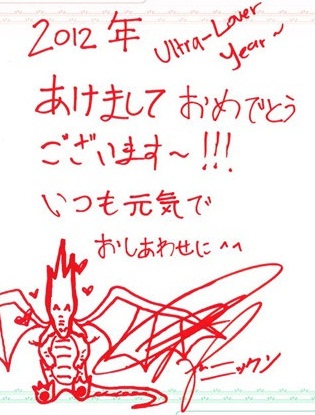 2012年
Ultra-Lover
Year~
あけまして おめでとう
ございます~!!!
いつも元気で
おしあわせに^^
ニックン